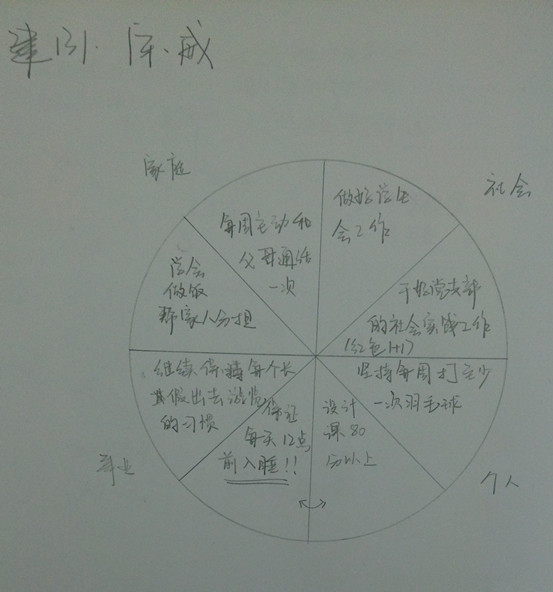 建131. 
家庭
社会
每周主动和
父母通话
一次
做好学生
会工作
学会
做饭
帮家人分担
干好党支部
的社会实践工作
(红色1+1)
继续保持每个长
假出去游览
的习惯
坚持每周打至少
一次羽毛球
保证
每天12点
前入睡!!
设计
课80
分以上
个人